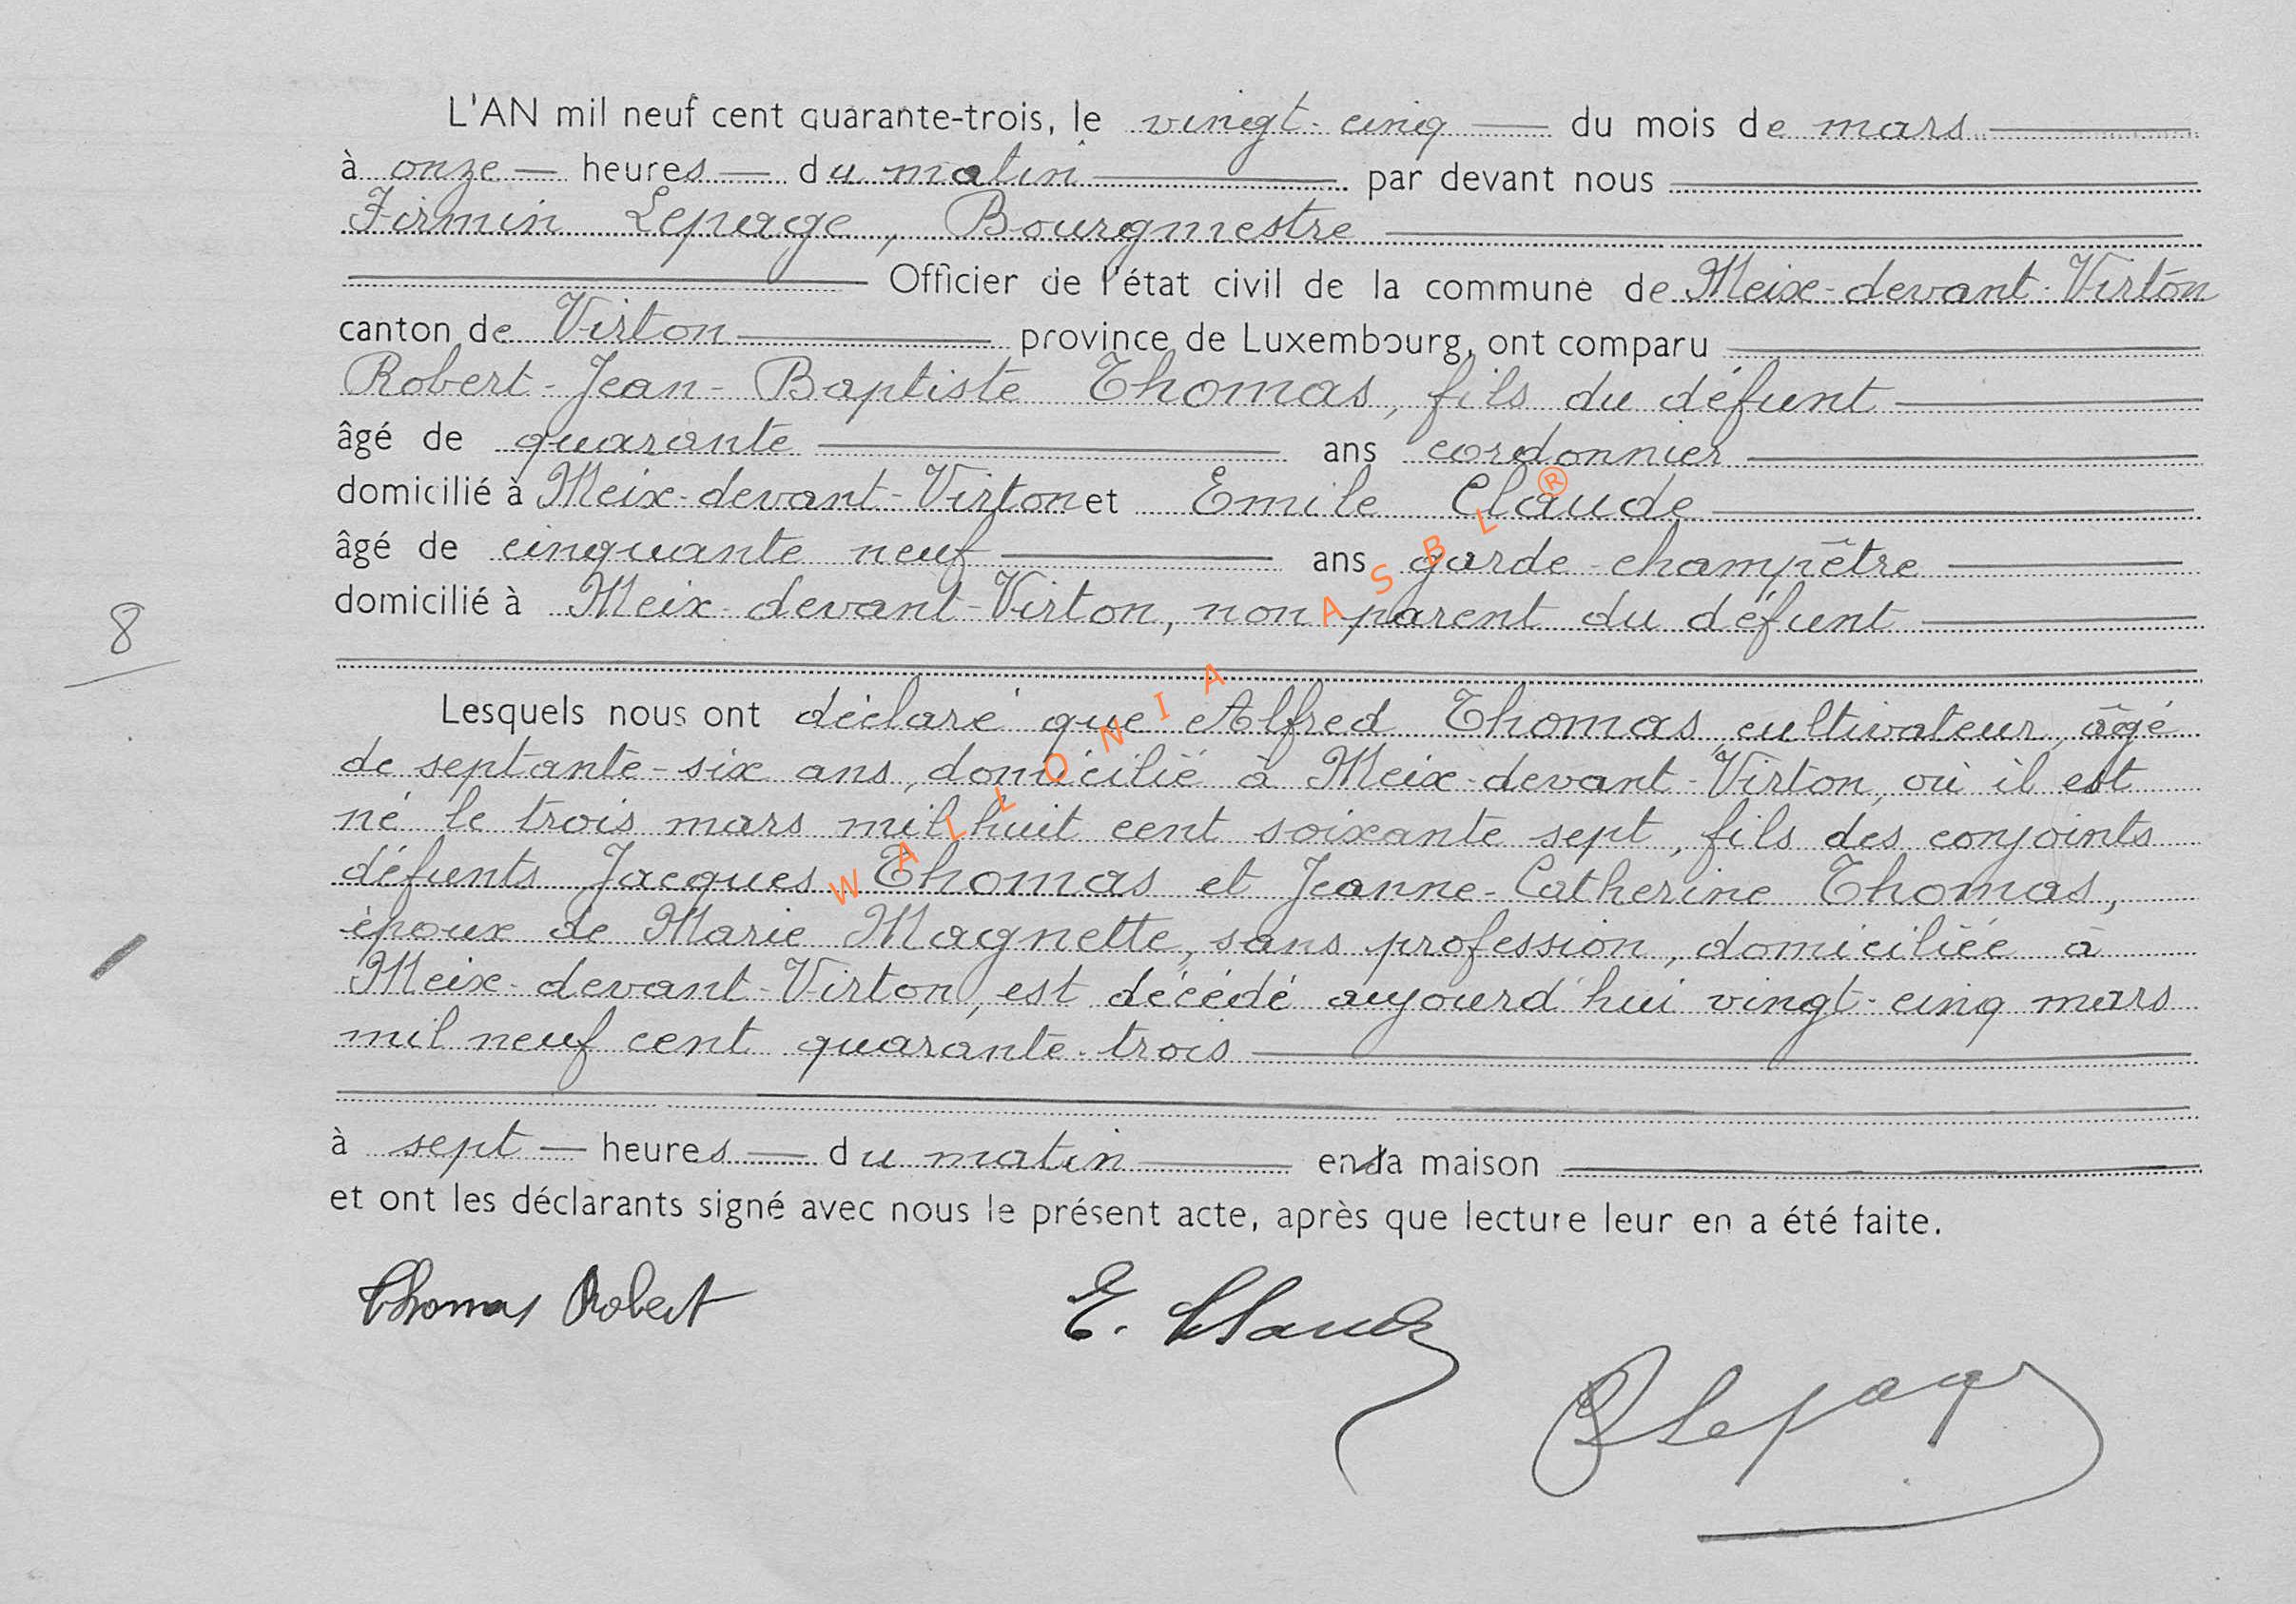 L'AN mil neuf cent quarante-trois, le vingt-cinq du mois de mars
à onze heures du matin par devant nous
Firmin Lepage, Bourgmestre
Officier de l'état civil de la commune de Meix-devant-Virton
canton de Virton province de Luxembourg, ont comparu
Robert-Jean-Baptiste Thomas, fils du défunt
âgé de quarante ans cordonnier
domicilié à Meix-devant-Virton et Emile Claude
âgé de cinquante neuf ans garde-champêtre
domicilié à Meix-devant-Virton, non parent du défunt
8
Lesquels nous ont déclaré que Alfred Thomas, cultivateur, âgé
de septante-six ans, domicilié à Meix-devant-Virton, où il est
né le trois mars mil huit cent soixante sept, fils des conjoints
défunts Jacques Thomas et Jeanne-Catherine Thomas,
époux de Marie Magnette, sans profession, domiciliée à
Meix-devant-Virton, est décédé aujourd'hui vingt-cinq mars
mil neuf cent quarante-trois
à sept heures du matin en sa maison
et ont les déclarants signé avec nous le présent acte, après que lecture leur en a été faite.
Thomas Robert E. Claude
Lepage
WALLONIA ASBL ®